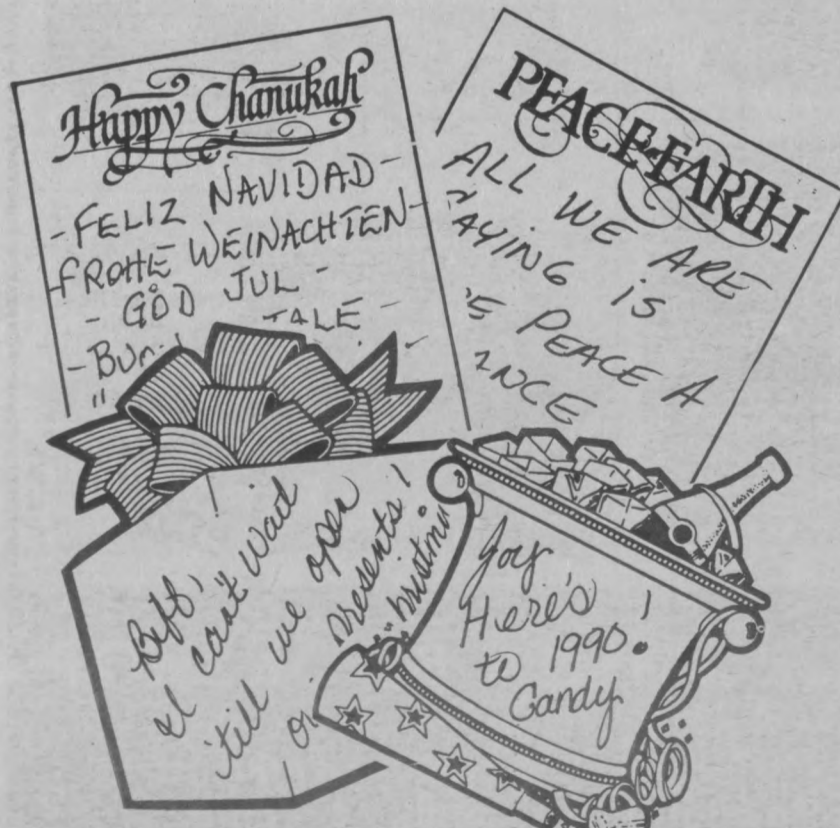 Happy Chanukah
-FELIZ NAVIDAD-
FROHE WEINACHTEN-
- GOD JUL -
PEACE·EARTH
ALL WE ARE
AYING iS
E PEACE A
NCE
Biff,
I can't Wait
'till we open
presents!
Joy
Here's
to 1990!
Candy